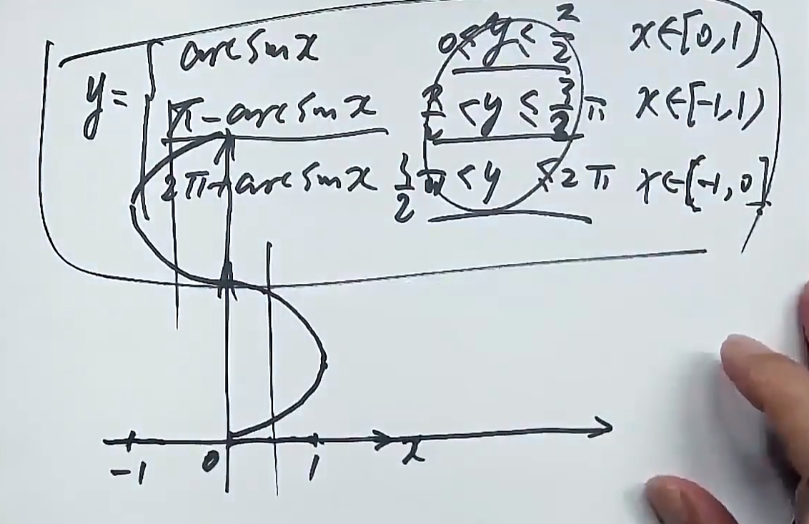 y = { arcsin x    0 ≤ y ≤ π/2    x∈[0,1]
π - arcsin x    π/2 < y ≤ 3/2 π    x∈[-1,1)
2π + arcsin x    3/2 π < y ≤ 2π    x∈[-1,0]
-1 0 1 x